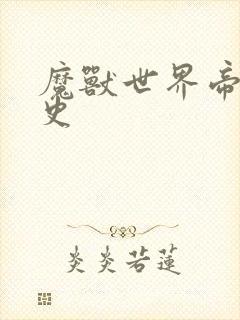 魔獸世界帝
史
炎炎若蓮